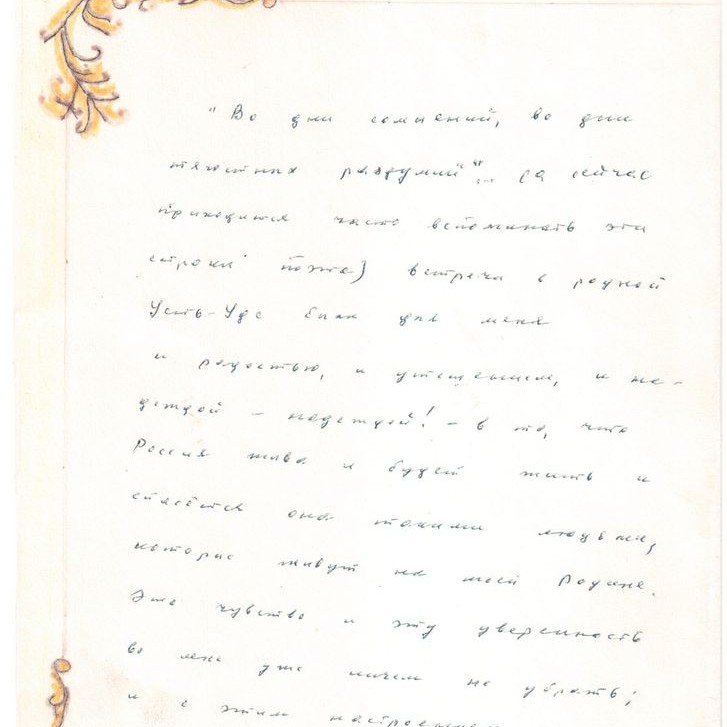 "Во дни сомнений, во дни
тягостных раздумий"... (а сейчас
приходится часто вспоминать эти
строки поэта) встреча в родной
Усть-Уде была для меня
и радостью, и утешением, и на-
деждой - надеждой! - в то, что
Россия жива и будет жить и
спасётся она такими людьми,
которые живут на моей Родине.
Это чувство и эту уверенность
во мне уже ничем не убрать;
и с этим настроением